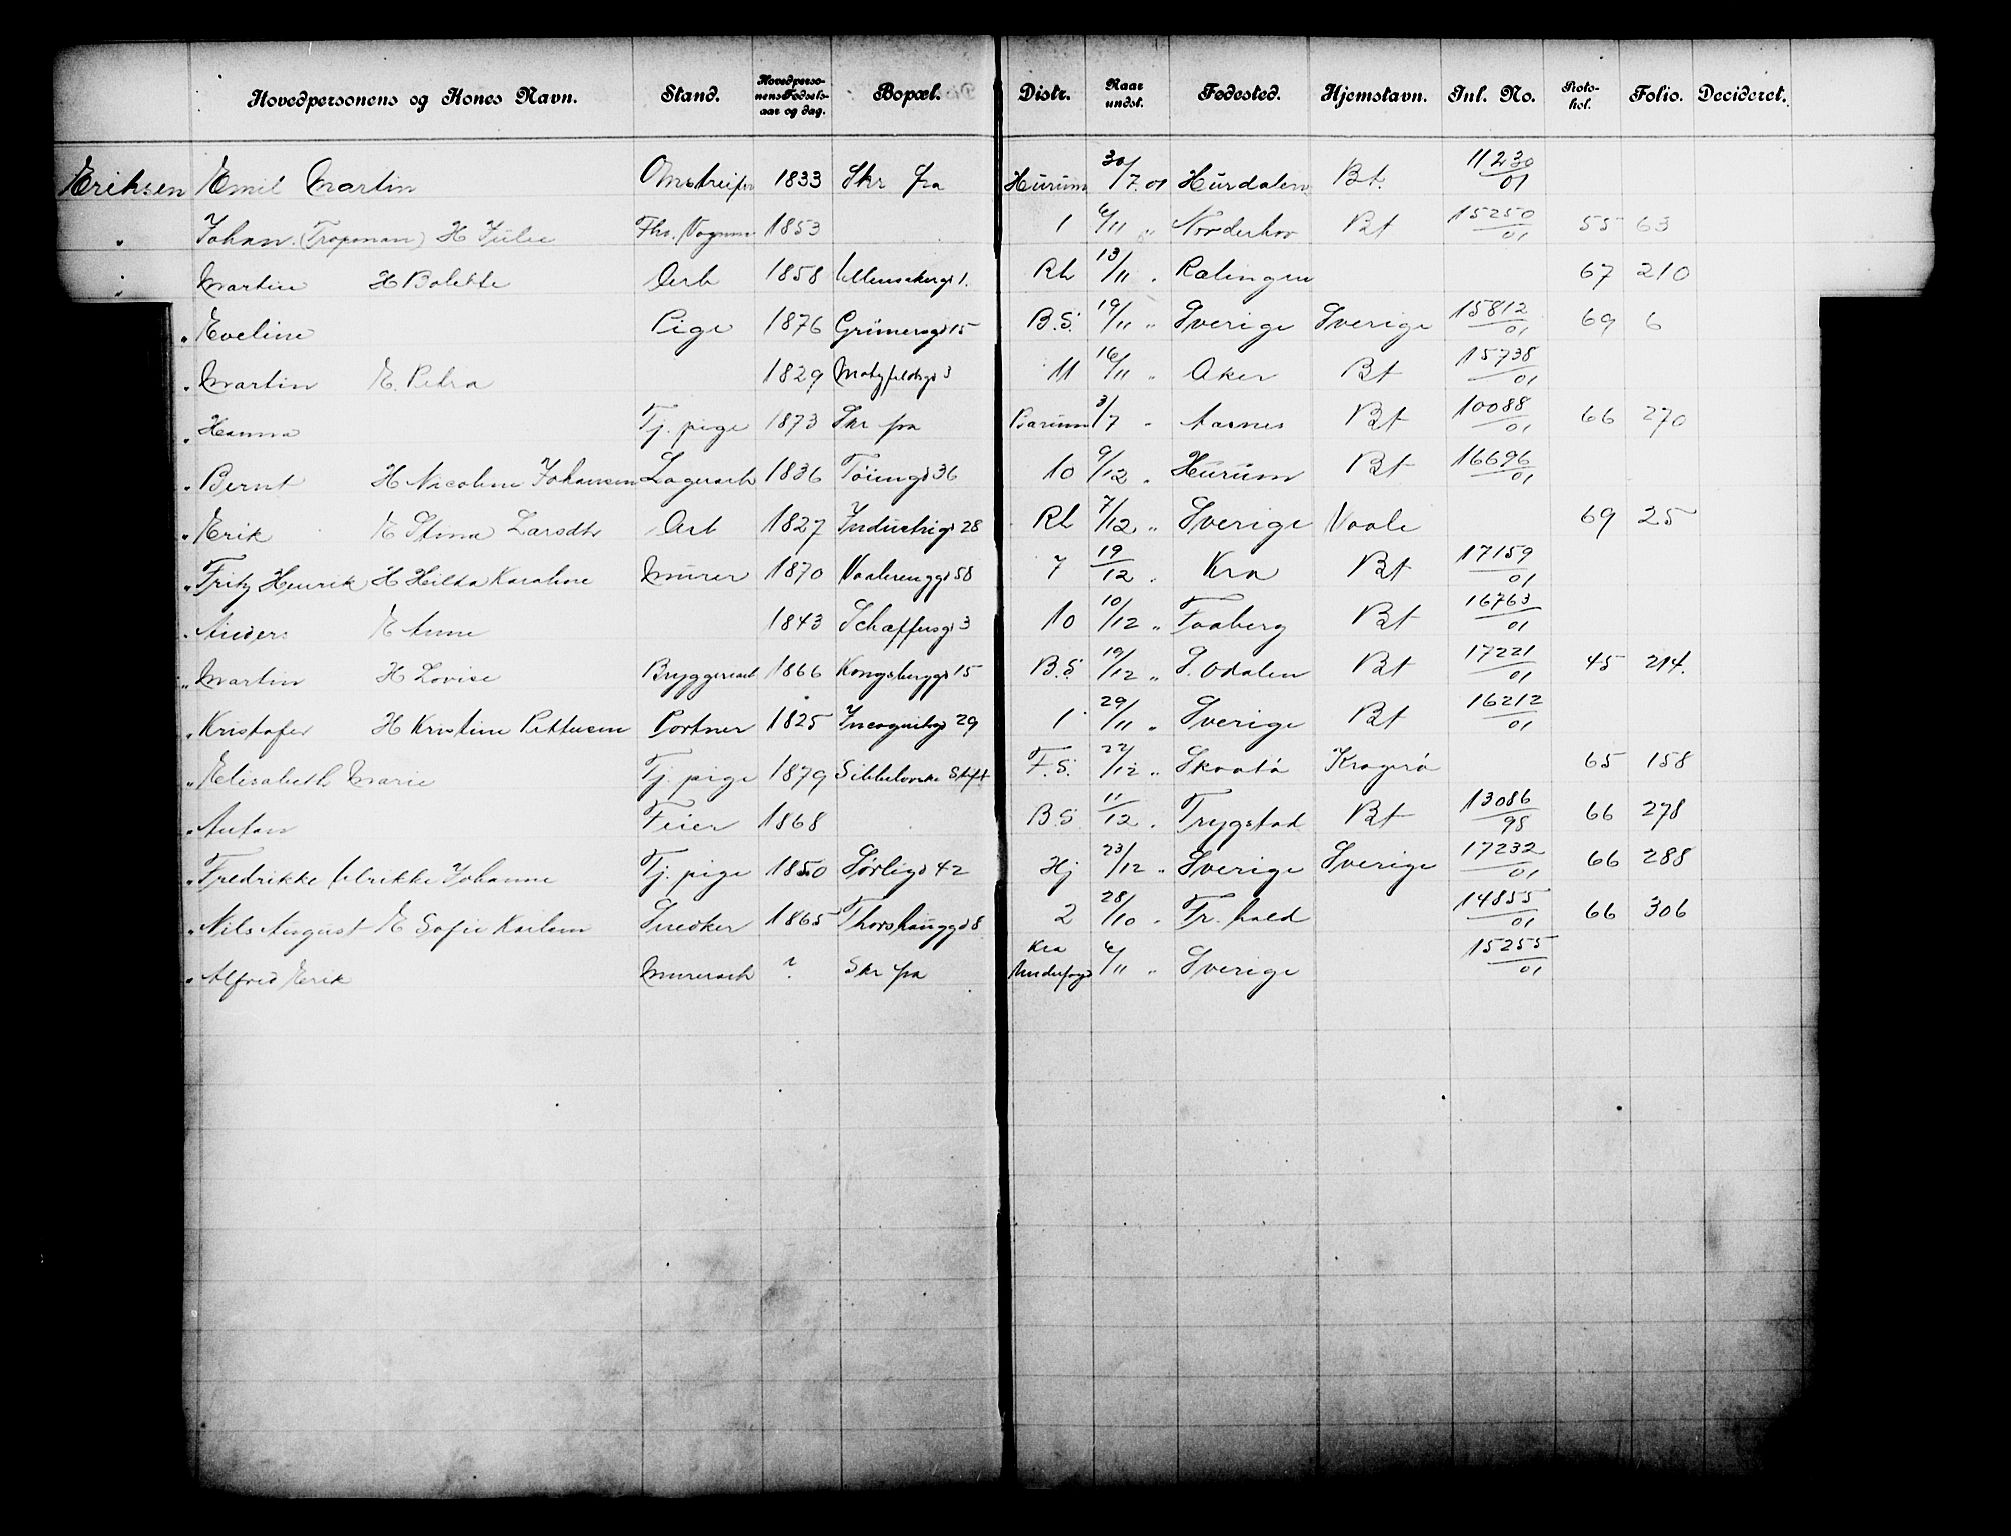 Hovedpersonens og Kones Navn. Stand. Hovedpersonens Fødselsaar og dag. Bopæl. Distr. Naar undst. Fødested. Hjemstavn. Inl. No. Protokol. Folio. Decideret.
Eriksen Emil Martin Omstreifer 1833 Skr fra Hurum 30/7 01 Hurdalen Bt. 11230/01
" Johan (Tropman) H Julie Fhv. 1853 1 6/11 " Norderhov Bt 15250/01 55 63
" Martin H Bolette Arb 1858 Ullensakergd 1. Rh 13/11 " Rælingen 67 210
" Eveline Pige 1876 Grünersgd 15 B.S. 19/11 " Sverige Sverige 15812/01 69 6
" Martin E. Petra 1829 Motzfeldtsgd 3 11 16/11 " Aker Bt 15738/01
" Hanna Tj. pige 1873 Skr fra Bærum 3/7 " Aasnes Bt 10088/01 66 270
" Bernt H Nicoline Johansen Lagerarb 1836 Tøiengd 36 10 9/12 " Hurum Bt 16696/01
" Erik E Stina Larsdtr Arb 1827 Industrigd 28 Rh 7/12 " Sverige Vaale 69 25
" Fritz Henrik H Hilda Karoline Murer 1870 Vaalerenggd 58 7 19/12 " Kra Bt 17159/01
" Anders E Anne 1843 Schæffersgd 3 10 10/12 " Faaberg Bt 16763/01
" Martin H Lovise Bryggeriarb 1866 Kongsberggd 15 B.S. 19/12 " S. Odalen Bt 17221/01 45 214.
" Kristofer H Kristine Pettersen Portner 1825 Incognitogd 29 1 29/11 " Sverige Bt 16212/01
" Elisabeth Marie Tj. pige 1879 Sibbelovske Stift F.S. 22/12 " Skaatø Kragerø 65 158
" Anton Feier 1868 B.S. 11/12 " Trygstad Bt 13086/98 66 278
" Fredrikke Ulrikke Johanne Tj. pige 1850 Sørligd 42 Hj 23/12 " Sverige Sverige 17232/01 66 288
" Nils August E Sofie Karlsen Snedker 1865 Thorshauggd 8 2 28/10 " Fr. hald 14855/01 66 306
" Alfred Erik Murerarb ? Skr fra Kra Underfogd 6/11 " Sverige 15255/01